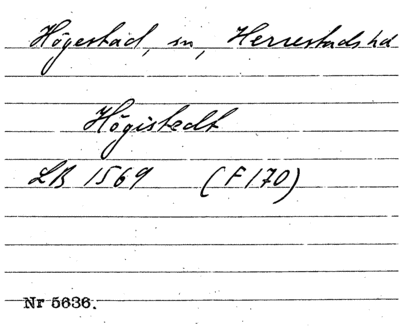 Högestad, sn, Herrestads hd
Högistedt
LB 1569 (F170)
Nr 5636.